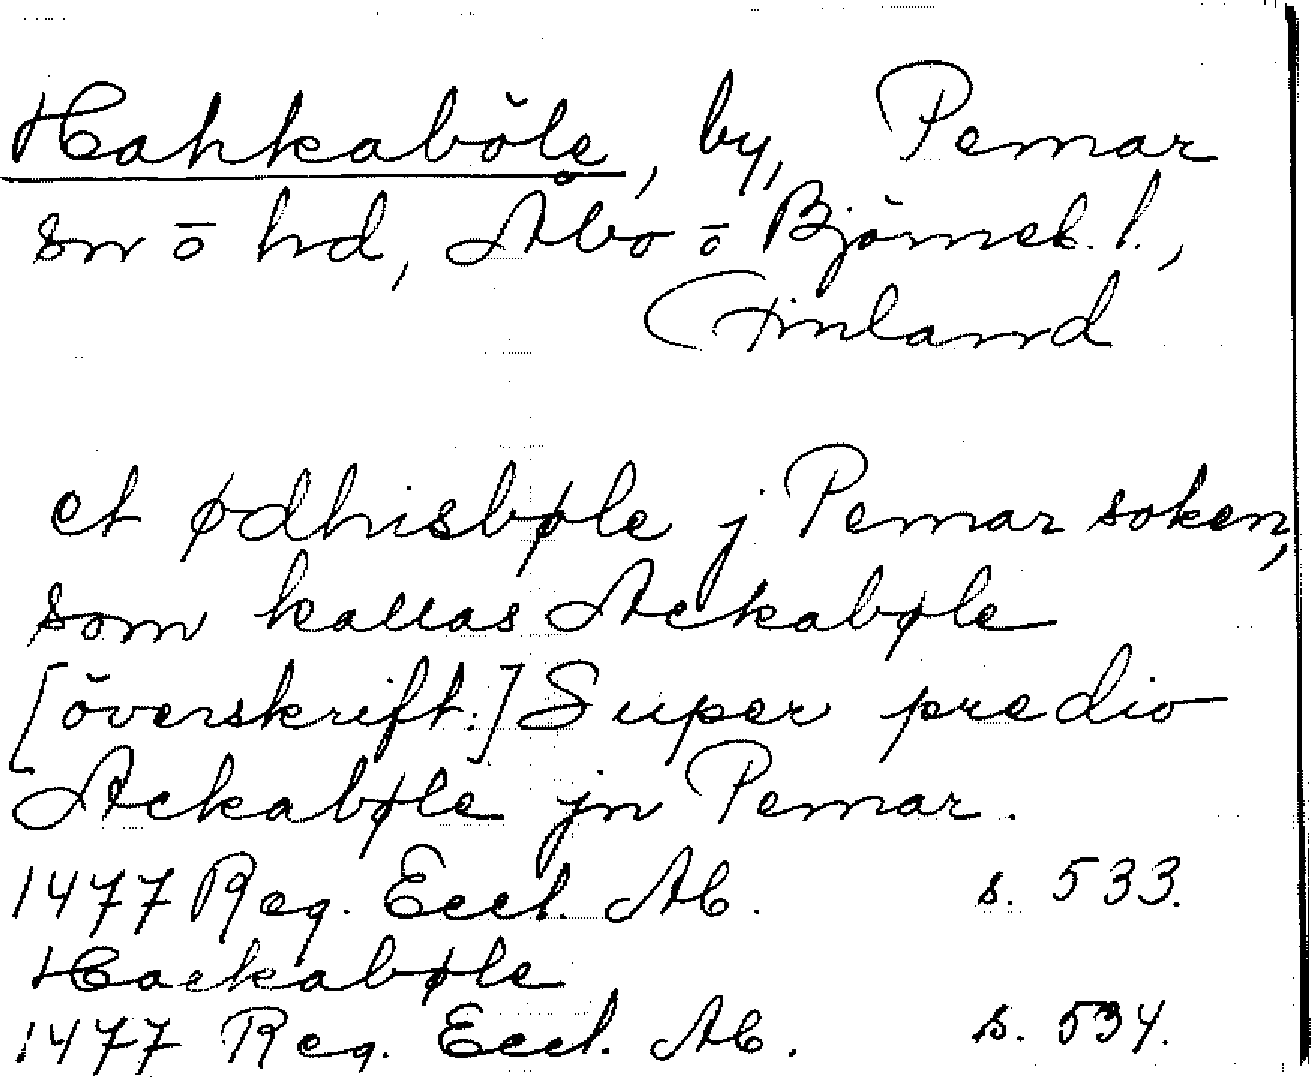 Hahkaböle, by, Pemar
sn o hd, Åbo o Björneb. l.,
Finland
et ødhisbøle j Pemar soken,
som kallas Ackabøle
[överskrift:] Super predio
Ackabøle jn Pemar.
1477 Reg. Eccl. Ab. s. 533.
Hackabøle
1477 Reg. Eccl. Ab. s. 534.